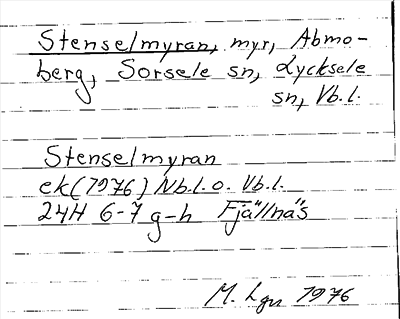 Stenselmyran, myr, Abmo-
berg, Sorsele sn, Lycksele
sn, Vb.l.
Stenselmyran
ek (1976) Nb.l. o. Vb.l.
24H 6-7 g-h Fjällnäs
M. Lgn 1976